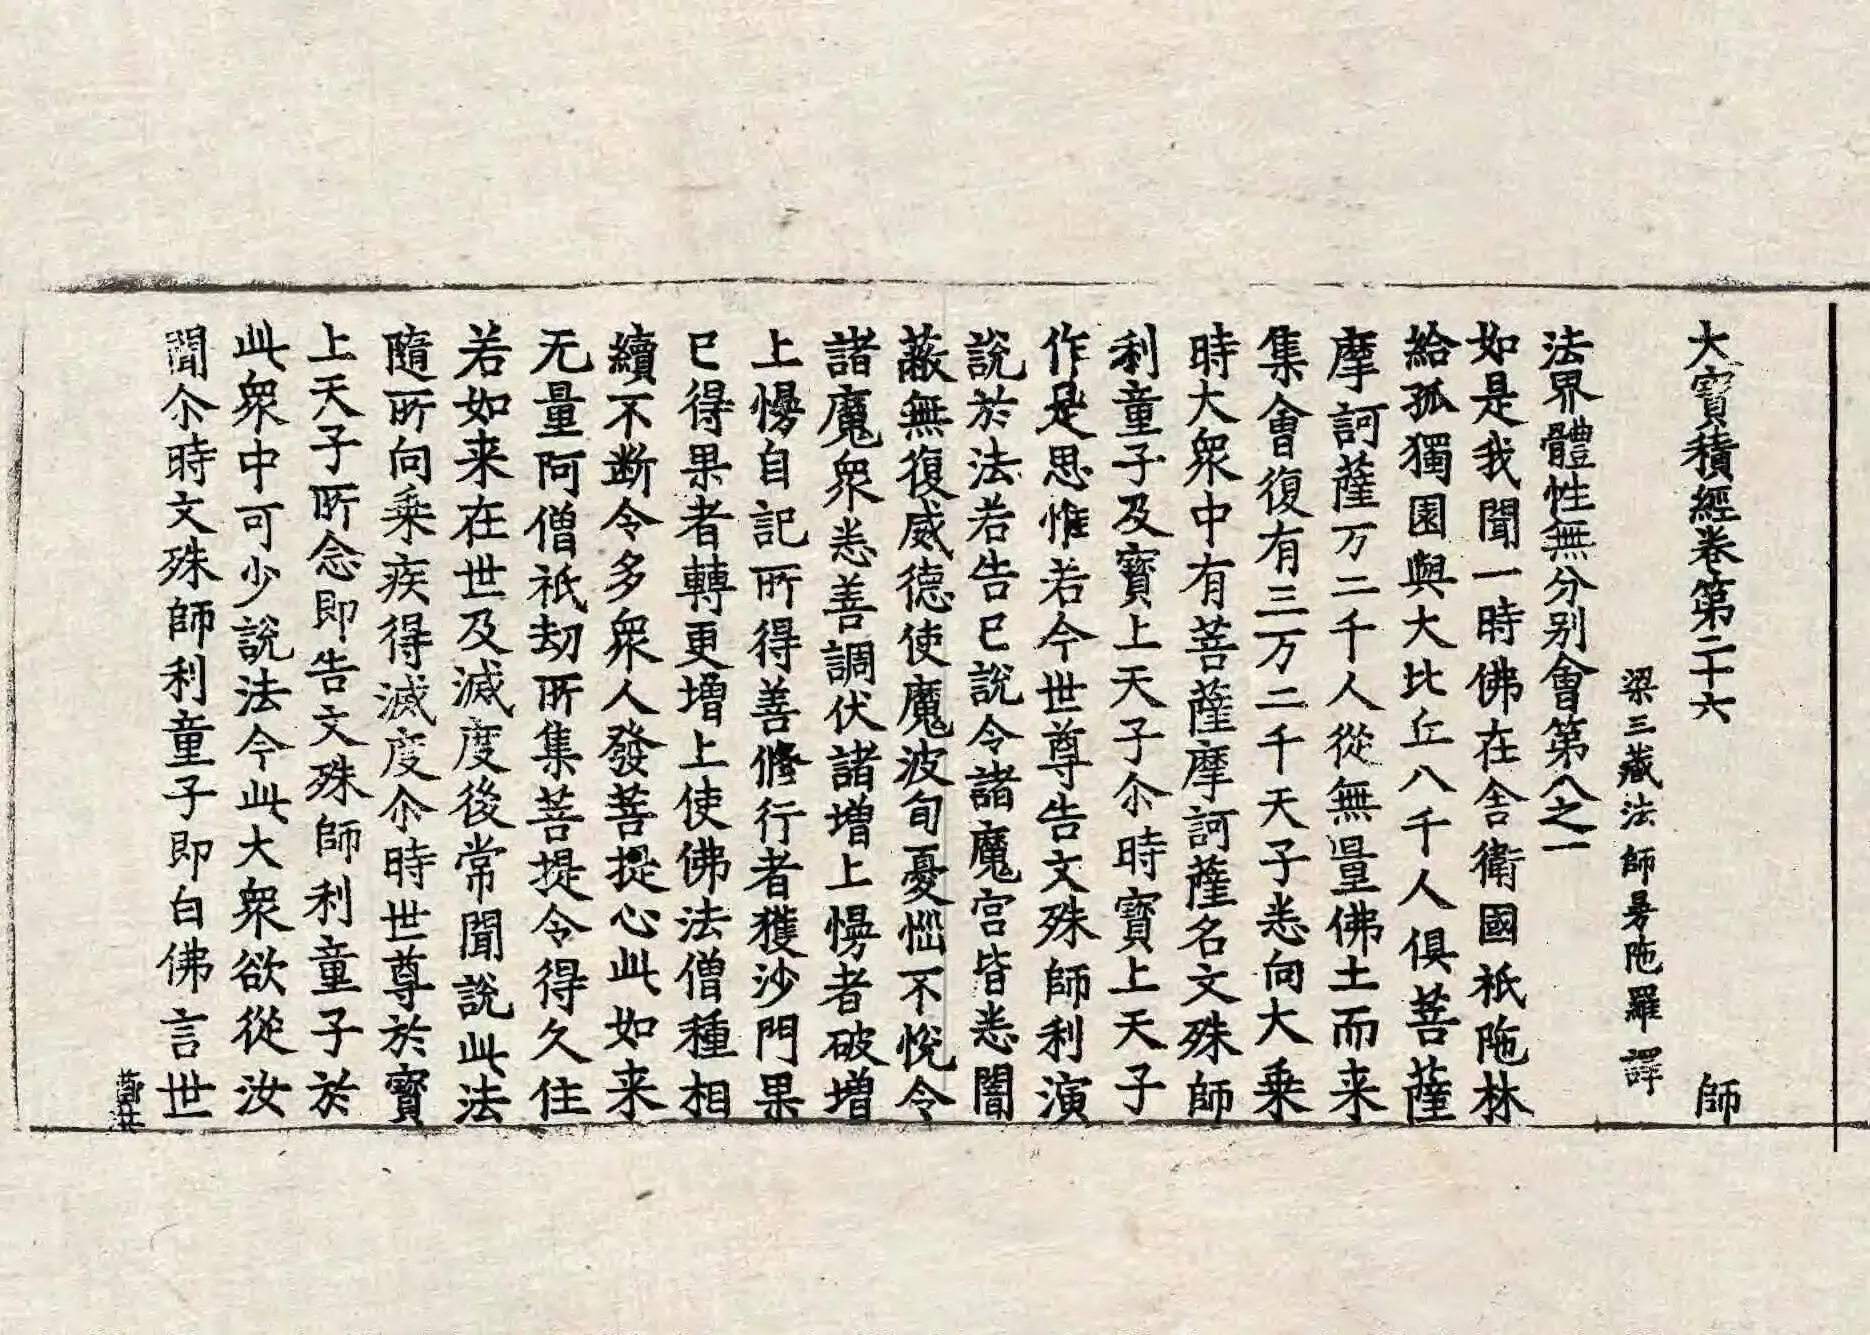 大寶積經卷第二十六 師
梁三藏法師曼陁羅譯
法界體性無分别會第八之一
如是我聞一時佛在舍衛國祇陁林
給孤獨園與大比丘八千人俱菩薩
摩訶薩万二千人從無量佛土而来
集會復有三万二千天子悉向大乗
時大衆中有菩薩摩訶薩名文殊師
利童子及寶上天子尒時寶上天子
作是思惟若今世尊告文殊師利演
說於法若告已說令諸魔宫皆悉闇
蔽無復威德使魔波旬憂惱不悅令
諸魔衆悉善調伏諸增上慢者破增
上慢自記所得善修行者獲沙門果
已得果者轉更增上使佛法僧種相
續不断令多衆人發菩提心此如来
无量阿僧祇劫所集菩提令得久住
若如来在世及滅度後常聞說此法
隨所向乗疾得滅度尒時世尊於寶
上天子所念即告文殊師利童子於
此衆中可少說法今此大衆欲從汝
聞尒時文殊師利童子即白佛言世